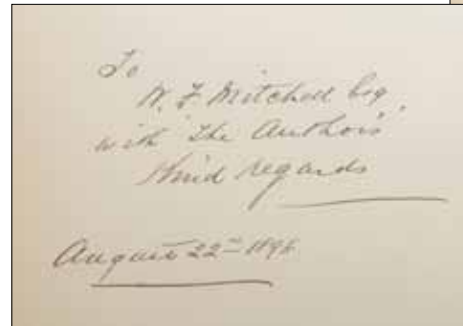 To
W. F. Mitchell Esq.
with The Author's
Kind regards
August 22nd 189